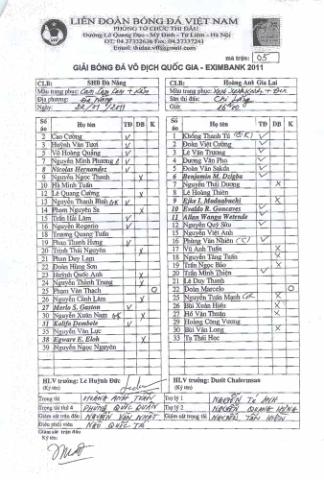 LIÊN ĐOÀN BÓNG ĐÁ VIỆT NAM
PHÒNG TỔ CHỨC THI ĐẤU
Đường Lê Quang Đạo - Mỹ Đình - Từ Liêm - Hà Nội
mã trận: 05
GIẢI BÓNG ĐÁ VÔ ĐỊCH QUỐC GIA - EXIMBANK 2011
CLB: SHB Đà Nẵng
Màu trang phục:
Địa phương: Đà Nẵng
Ngày:
Số áo Họ tên TĐ DB K
2 Cao Cường V
3 Huỳnh Văn Tươi V
5 Võ Hoàng Quảng V
7 Nguyễn Minh Phương V
8 Nicolas Hernandez V
9 Nguyễn Ngọc Thanh X
10 Hà Minh Tuấn
12 Lê Quang Cường X
13 Nguyễn Thanh Bình GK V
14 Phạm Nguyên Sa X
15 Trần Hải Lâm V
16 Nguyễn Rogerio V
18 Trương Quang Tuấn
19 Phan Thanh Hưng V
20 Trịnh Thái Nguyên X
21 Phan Duy Lam
22 Đoàn Hùng Sơn
23 Huỳnh Quốc Anh X
24 Nguyễn Thành Trung X
25 Phạm Văn Thạch O
26 Nguyễn Cảnh Lâm X
27 Merlo S. Gaston V
30 Nguyễn Xuân Nam GK X
31 Kalifa Dembele V
35 Nguyễn Văn Lực
38 Egware E. Eloh X
39 Nguyễn Ngọc Nguyên
HLV trưởng: Lê Huỳnh Đức
(Ký tên)
CLB: Hoàng Anh Gia Lai
Màu trang phục:
Sân thi đấu: Chi Lăng
Giờ:
Số áo Họ tên TĐ DB K
1 Khổng Thanh Tú (GK) V
2 Đoàn Việt Cường V
3 Lê Văn Trương V
4 Dương Văn Pho V
5 Đoàn Văn Sakda V
6 Benjamin M. Dzigba V
7 Nguyễn Thái Dương X
8 Lê Hoàng Thiên
9 Ejike I. Maduabuchi X
10 Evaldo R. Goncaves V
11 Allan Wanga Wetende V
12 Nguyễn Quý Sửu V
15 Nguyễn Việt Anh
16 Phùng Văn Nhiên (C) V
17 Vũ Anh Tuấn X
18 Nguyễn Tăng Tuấn X
19 Trần Ngọc Bảo X
20 Trần Minh Thiện V
21 Lê Duy Thanh
22 Đoàn Marcelo O
25 Nguyễn Tuấn Mạnh GK X
26 Bùi Xuân Hiếu X
27 Hồ Văn Thuận X
29 Hoàng Công Vương
30 Bùi Văn Long X
33 Tạ Thái Học
HLV trưởng: Dusit Chalermsan
(Ký tên)
Trọng tài HOÀNG ANH TUẤN
Trợ lý 1 NGUYỄN TỬ
Trọng tài thứ 4 PHÙNG QUỐC
Trợ lý 2 NGUYỄN QUANG
Giám sát trận đấu NGUYỄN VĂN
Giám sát trọng tài NGUYỄN TẤN HIỀN
Điều phối viên
Giám sát trận đấu
Ký tên: